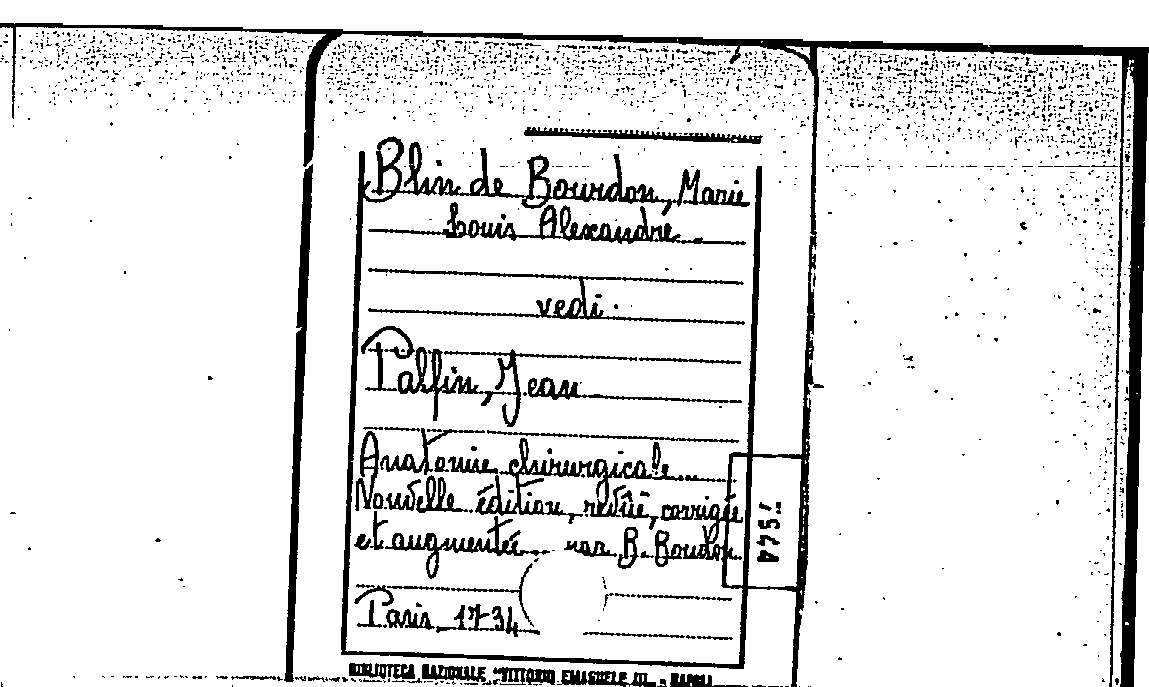 Blin de Bourdon, Marie
Louis Alexandre
vedi
Palfin, Jean
Anatomie chirurgicale...
Nouvelle édition, revûë, corrigée
et augmentée... par B. Boudon
Paris, 1734
BIBLIOTECA NAZIONALE "VITTORIO EMANUELE III" - NAPOLI